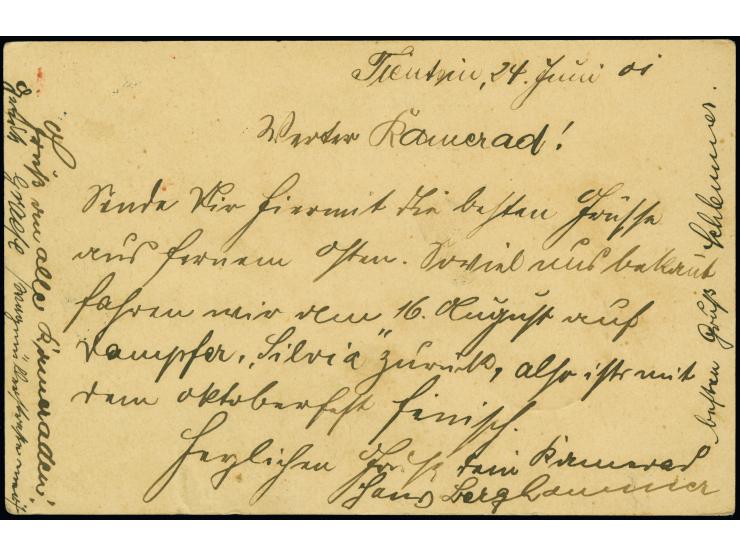 Tientsin, 24. Juni 01
Werter Kamerad!
Sende Dir hiermit die besten Grüsse
aus fernem Osten. Soviel uns bekant
fahren wir am 16. August auf
Dampfer „Silvia" zurück, also ists mit
dem Oktoberfest finisch.
Herzlichen Gruß dein Kamerad
Hans Berghammer
besten Gruß
Gruß an alle Kameraden!